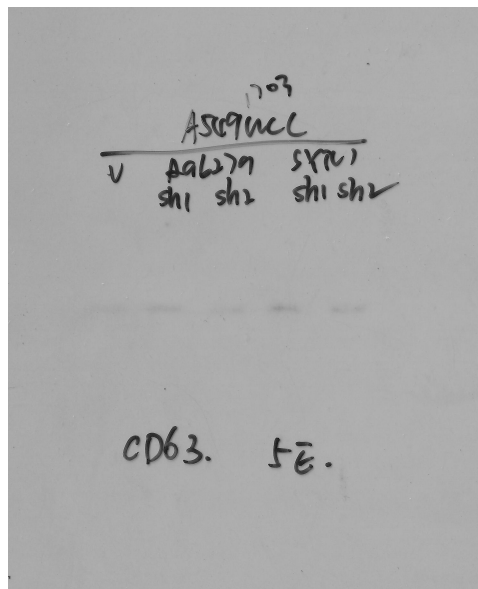 1703
A549WCL
V Rab27a SYTL1
sh1 sh2 sh1 sh2
CD63. 5E.